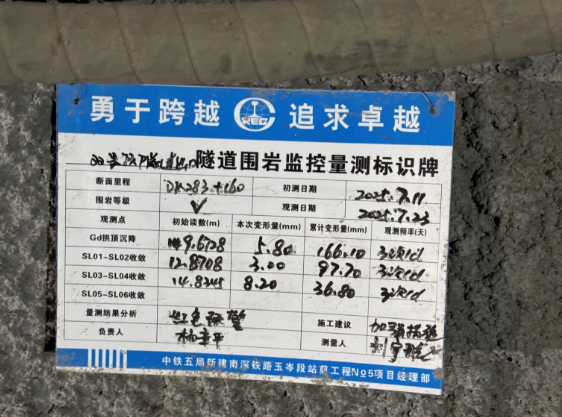 勇于跨越 REC 追求卓越
隧道围岩监控量测标识牌
断面里程 DK283+160 初测日期 2025.7.11
围岩等级 V 观测日期 2025.7.23
观测点 初始读数(m) 本次变形量(mm) 累计变形量(mm) 观测频率(天)
Gd拱顶沉降 9.6728 5.80 166.10 3次/d
SL01-SL02收敛 12.8708 3.00 97.70 3次/d
SL03-SL04收敛 14.8345 8.20 36.80 3次/d
SL05-SL06收敛
量测结果分析 红色预警 施工建议 加强
负责人 测量人
中铁五局新建南深铁路玉岑段站前工程No5项目经理部